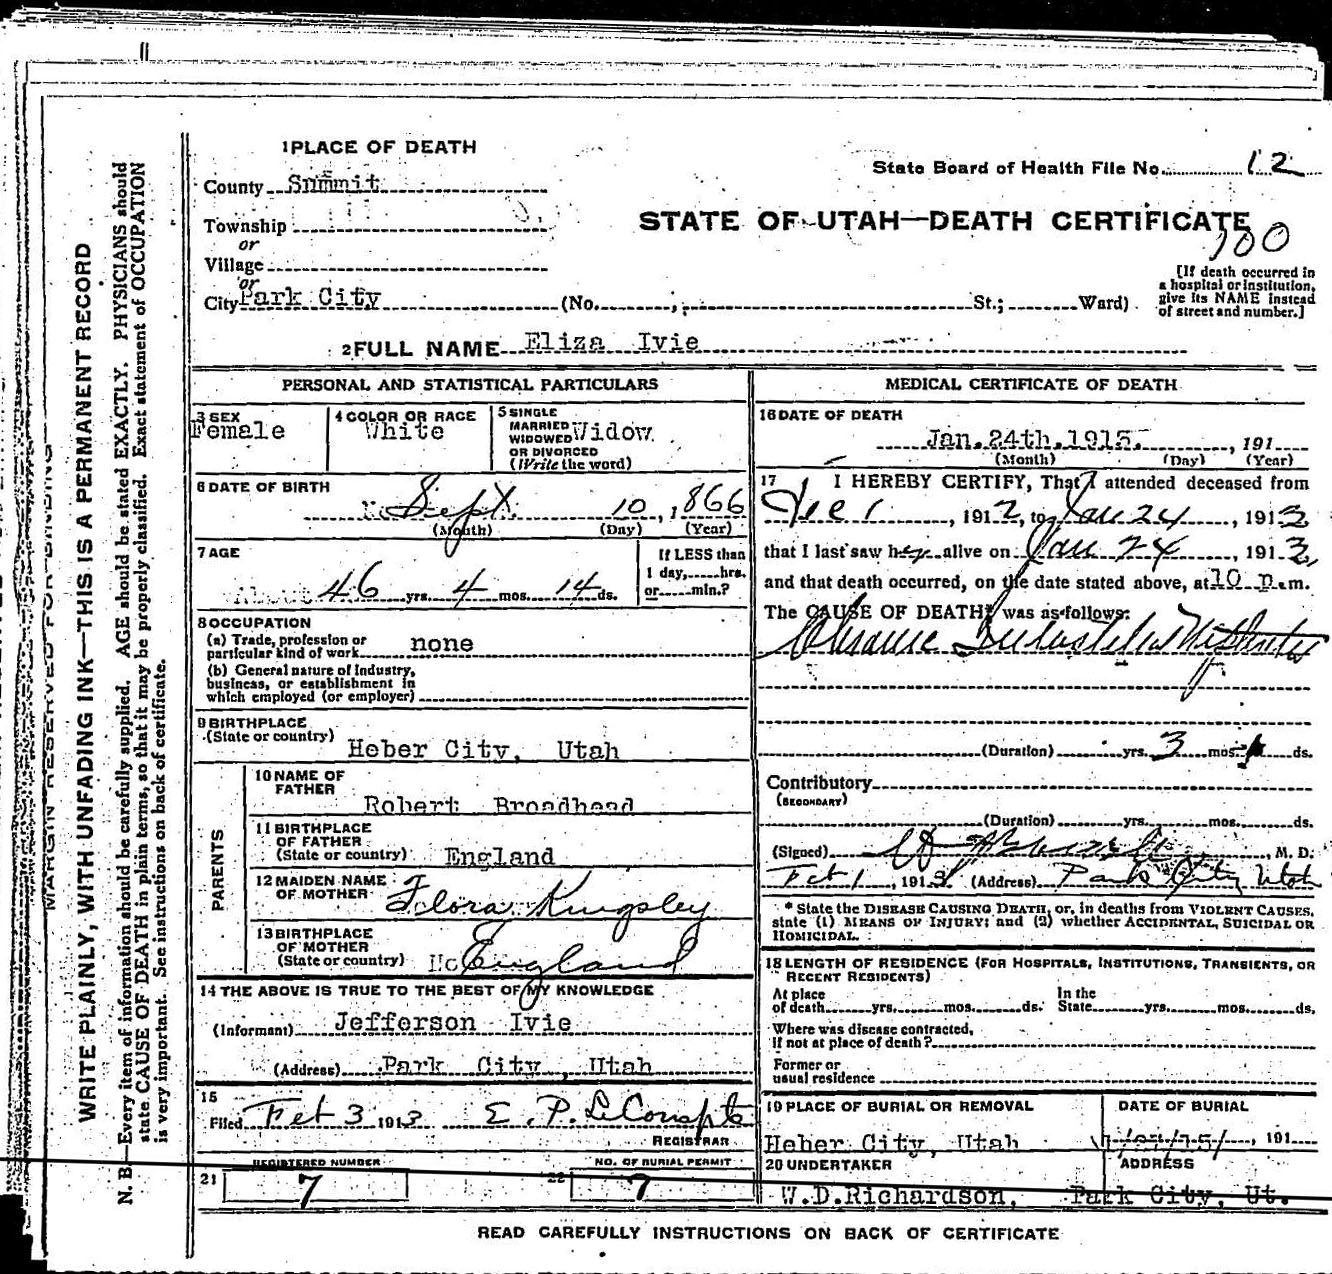 1 PLACE OF DEATH
State Board of Health File No. 12
County Summit
STATE OF UTAH—DEATH CERTIFICATE
100
Township
or
Village
or
City Park City (No. , St.; Ward)
[If death occurred in
a hospital or institution,
give its NAME instead
of street and number.]
2 FULL NAME Eliza Ivie
PERSONAL AND STATISTICAL PARTICULARS
3 SEX
Female
4 COLOR OR RACE
White
5 SINGLE
MARRIED
WIDOWED Widow
OR DIVORCED
(Write the word)
6 DATE OF BIRTH
Sept. 10, 1866
(Month) (Day) (Year)
7 AGE
46 yrs. 4 mos. 14 ds.
If LESS than
1 day, hrs.
or min.?
8 OCCUPATION
(a) Trade, profession or
particular kind of work none
(b) General nature of Industry,
business, or establishment in
which employed (or employer)
9 BIRTHPLACE
(State or country) Heber City, Utah
PARENTS
10 NAME OF
FATHER
Robert Broadhead
11 BIRTHPLACE
OF FATHER
(State or country) England
12 MAIDEN NAME
OF MOTHER Flora Kingsley
13 BIRTHPLACE
OF MOTHER
(State or country) England
14 THE ABOVE IS TRUE TO THE BEST OF MY KNOWLEDGE
(Informant) Jefferson Ivie
(Address) Park City, Utah
15
Filed Feb 3 1913 E. P.
REGISTRAR
REGISTERED NUMBER
21 7
NO. OF BURIAL PERMIT
22 7
MEDICAL CERTIFICATE OF DEATH
16 DATE OF DEATH
Jan. 24th, 1913. , 191
(Month) (Day) (Year)
17 I HEREBY CERTIFY, That I attended deceased from
Dec 1, 1912, to Jan 24, 1913,
that I last saw her alive on Jan 24, 1913,
and that death occurred, on the date stated above, at 10 p.m.
The CAUSE OF DEATH* was as follows:
Chronic
(Duration) yrs. 3 mos. ds.
Contributory
(SECONDARY)
(Duration) yrs. mos. ds.
(Signed) M. D.
Feb 1, 1913 (Address) Park City Utah
* State the DISEASE CAUSING DEATH, or, in deaths from VIOLENT CAUSES,
state (1) MEANS OF INJURY; and (2) whether ACCIDENTAL, SUICIDAL OR
HOMICIDAL.
18 LENGTH OF RESIDENCE (FOR HOSPITALS, INSTITUTIONS, TRANSIENTS, OR
RECENT RESIDENTS)
At place
of death yrs. mos. ds.
In the
State yrs. mos. ds.
Where was disease contracted,
if not at place of death?
Former or
usual residence
19 PLACE OF BURIAL OR REMOVAL
Heber City, Utah
DATE OF BURIAL
, 191
20 UNDERTAKER
W.D.Richardson,
ADDRESS
Park City, Ut.
READ CAREFULLY INSTRUCTIONS ON BACK OF CERTIFICATE
MARGIN RESERVED FOR BINDING
WRITE PLAINLY, WITH UNFADING INK—THIS IS A PERMANENT RECORD
N. B.—Every item of information should be carefully supplied. AGE should be stated EXACTLY. PHYSICIANS should
state CAUSE OF DEATH in plain terms, so that it may be properly classified. Exact statement of OCCUPATION
is very important. See instructions on back of certificate.